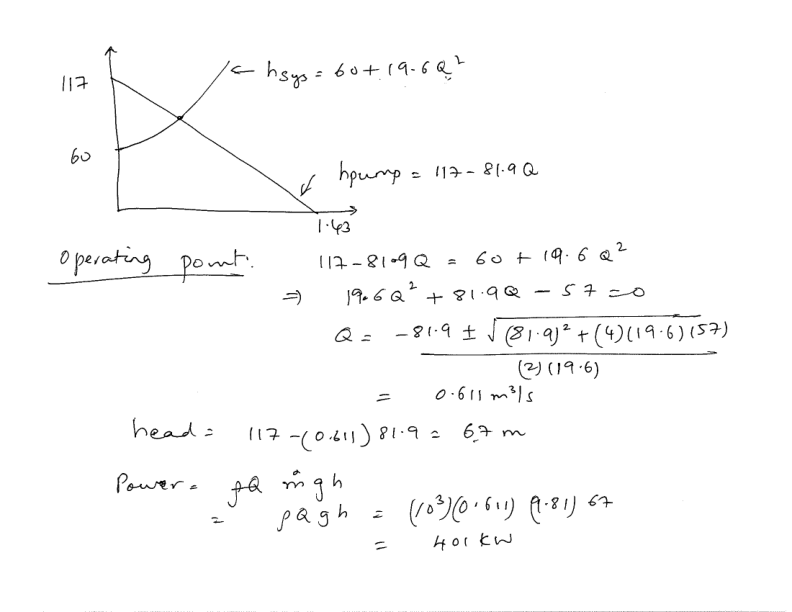 117
← hsys = 60 + 19.6 Q²
60
hpump = 117 - 81.9 Q
1.43
Operating point:
117 - 81.9 Q = 60 + 19.6 Q²
⇒ 19.6 Q² + 81.9 Q - 57 = 0
Q = -81.9 ± √(81.9)² + (4)(19.6)(57)
(2)(19.6)
= 0.611 m³/s
head = 117 - (0.611) 81.9 = 67 m
Power = ṁ g h
= ρ Q g h = (10³)(0.611) (9.81) 67
= 401 KW